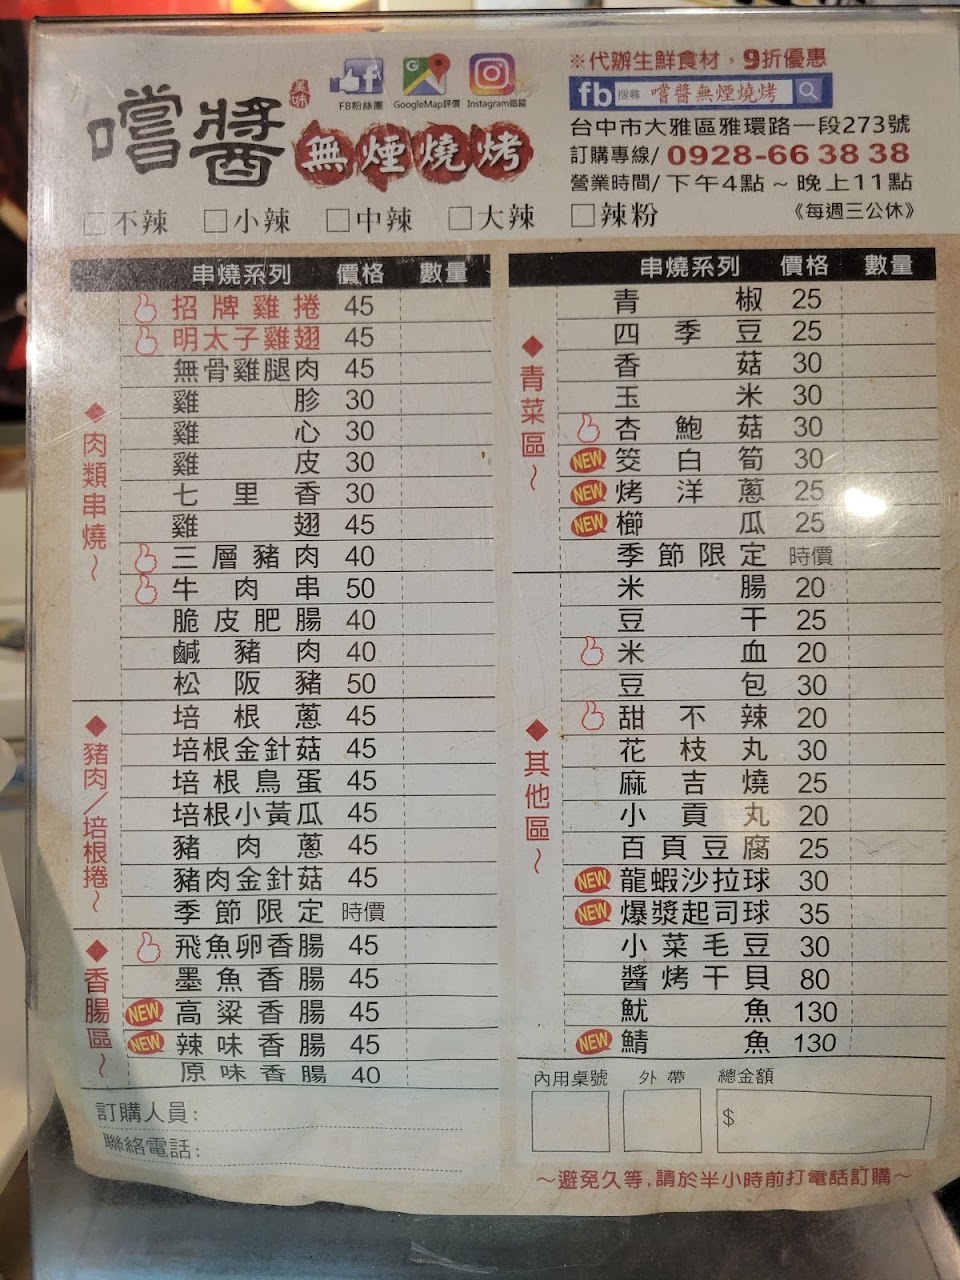 嚐醬
美味
無煙燒烤
FB粉絲團
GoogleMap評價
Instagram追蹤
※代辦生鮮食材，9折優惠
fb 搜尋 嚐醬無煙燒烤
台中市大雅區雅環路一段273號
訂購專線/ 0928-66 38 38
營業時間/ 下午4點 ~ 晚上11點
《每週三公休》
□不辣 □小辣 □中辣 □大辣 □辣粉
串燒系列 價格 數量
◆肉類串燒~
招牌雞捲 45
明太子雞翅 45
無骨雞腿肉 45
雞胗 30
雞心 30
雞皮 30
七里香 30
雞翅 45
三層豬肉 40
牛肉串 50
脆皮肥腸 40
鹹豬肉 40
松阪豬 50
◆豬肉／培根捲~
培根蔥 45
培根金針菇 45
培根鳥蛋 45
培根小黃瓜 45
豬肉蔥 45
豬肉金針菇 45
季節限定 時價
◆香腸區~
飛魚卵香腸 45
墨魚香腸 45
NEW 高粱香腸 45
NEW 辣味香腸 45
原味香腸 40
訂購人員:
聯絡電話:
串燒系列 價格 數量
◆青菜區~
青椒 25
四季豆 25
香菇 30
玉米 30
杏鮑菇 30
NEW 筊白筍 30
NEW 烤洋蔥 25
NEW 櫛瓜 25
季節限定 時價
◆其他區~
米腸 20
豆干 25
米血 20
豆包 30
甜不辣 20
花枝丸 30
麻吉燒 25
小貢丸 20
百頁豆腐 25
NEW 龍蝦沙拉球 30
NEW 爆漿起司球 35
小菜毛豆 30
醬烤干貝 80
魷魚 130
NEW 鯖魚 130
內用桌號 外帶 總金額
$
~避免久等,請於半小時前打電話訂購~